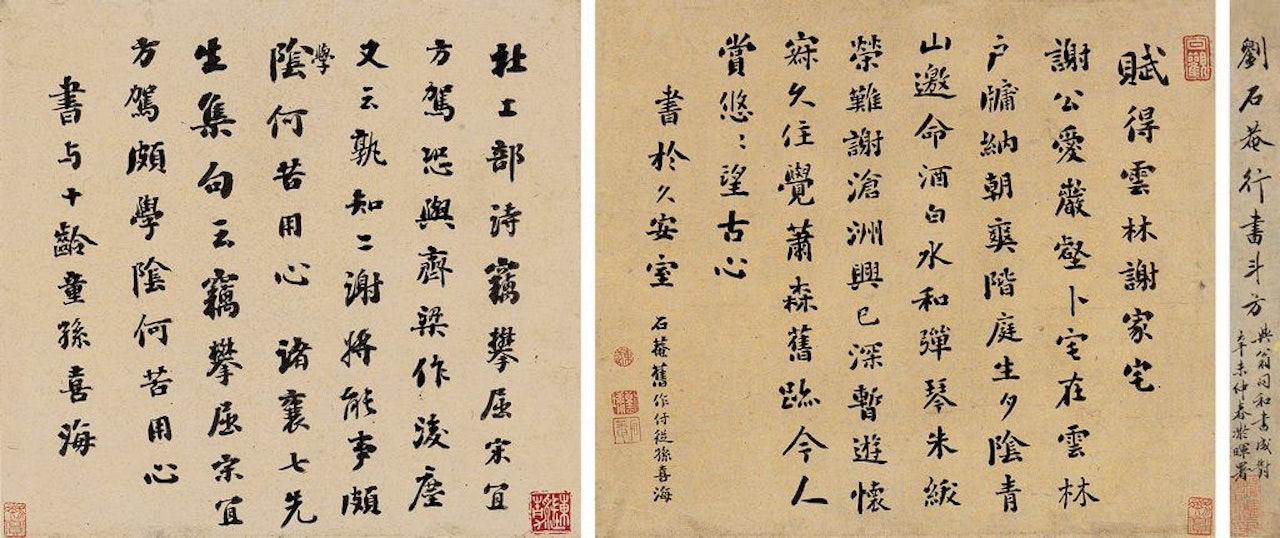 劉石菴行書斗方
與翁同和書成對
辛未仲春
賦得雲林謝家宅
謝公愛巖壑卜宅在雲林
户牖納朝爽階庭生夕陰青
山邀命酒白水和彈琴朱紱
榮難謝滄洲興已深暫遊懷
寐久住覺蕭森舊跡今人
賞悠〻望古心
書於久安室
石菴舊作付從孫喜海
杜工部詩竊攀屈宋宜
方駕恐與齊梁作後塵
又云孰知二謝將能事頗
學陰何苦用心 諸襄七先
生集句云竊攀屈宋宜
方駕頗學陰何苦用心
書与十齡童孫喜海